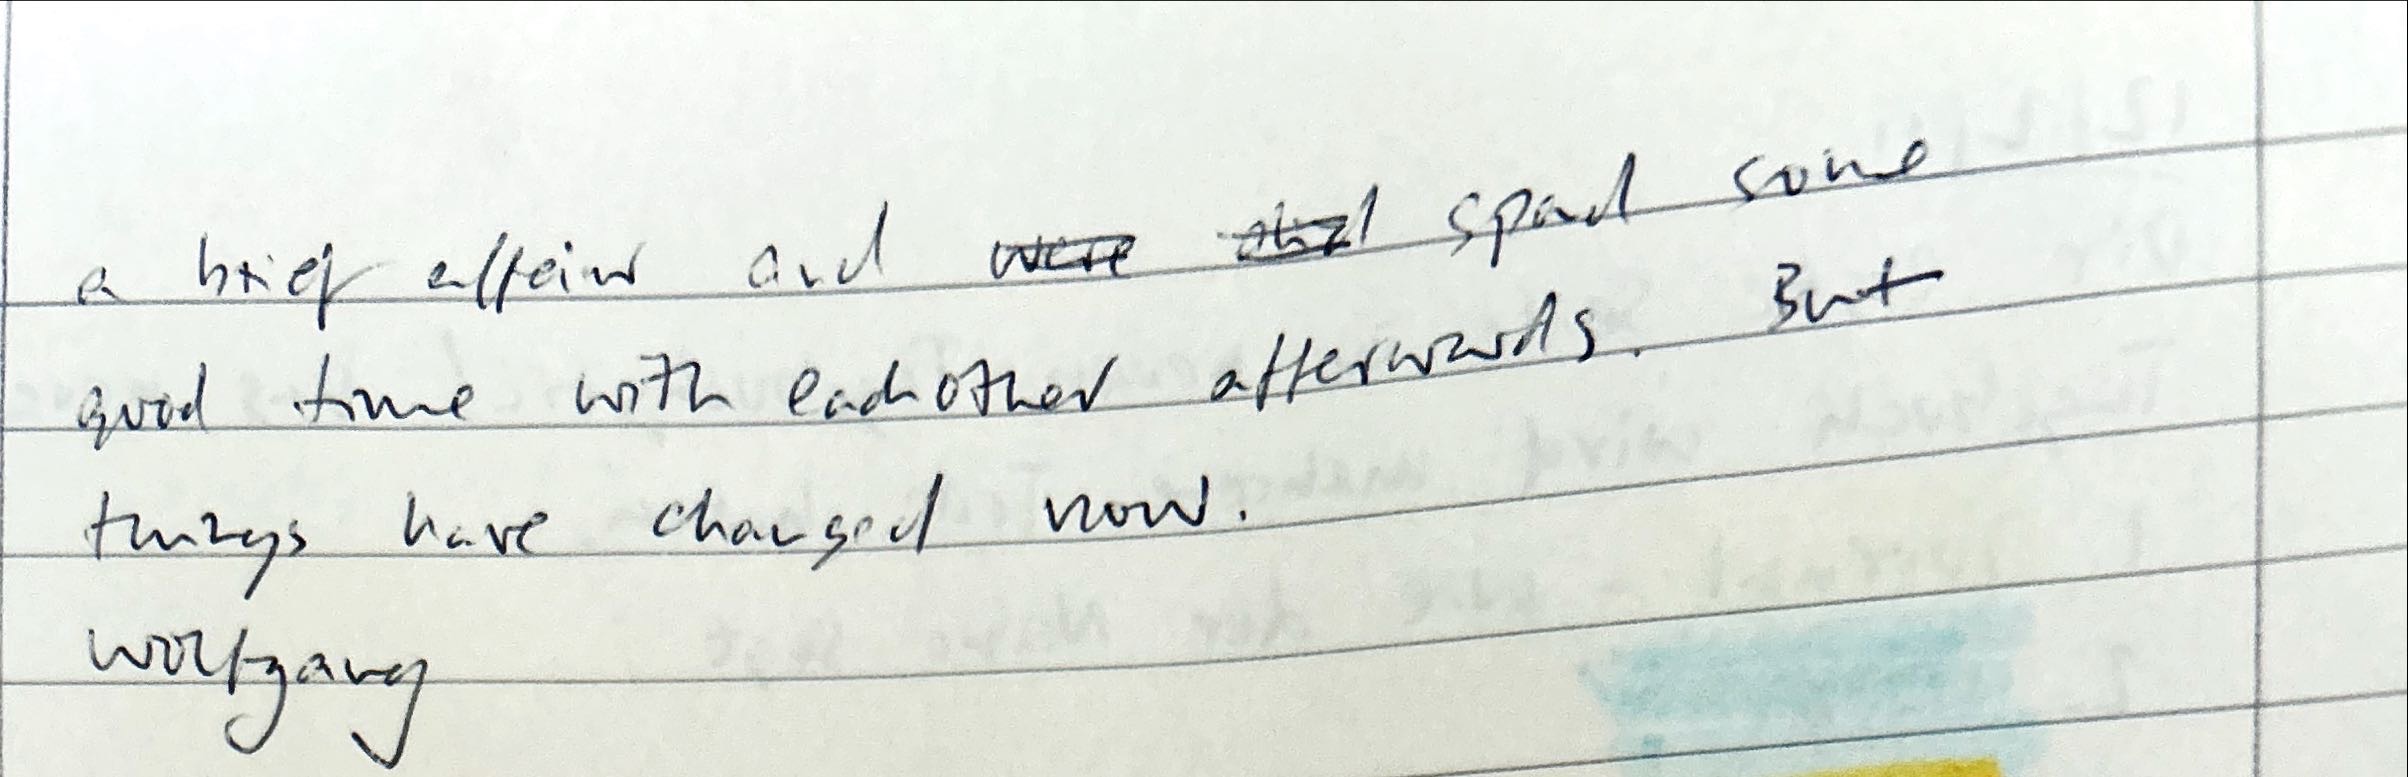 a brief affair and were spend some
good time with eachother afterwards. But
things have changed now.
Wolfgang